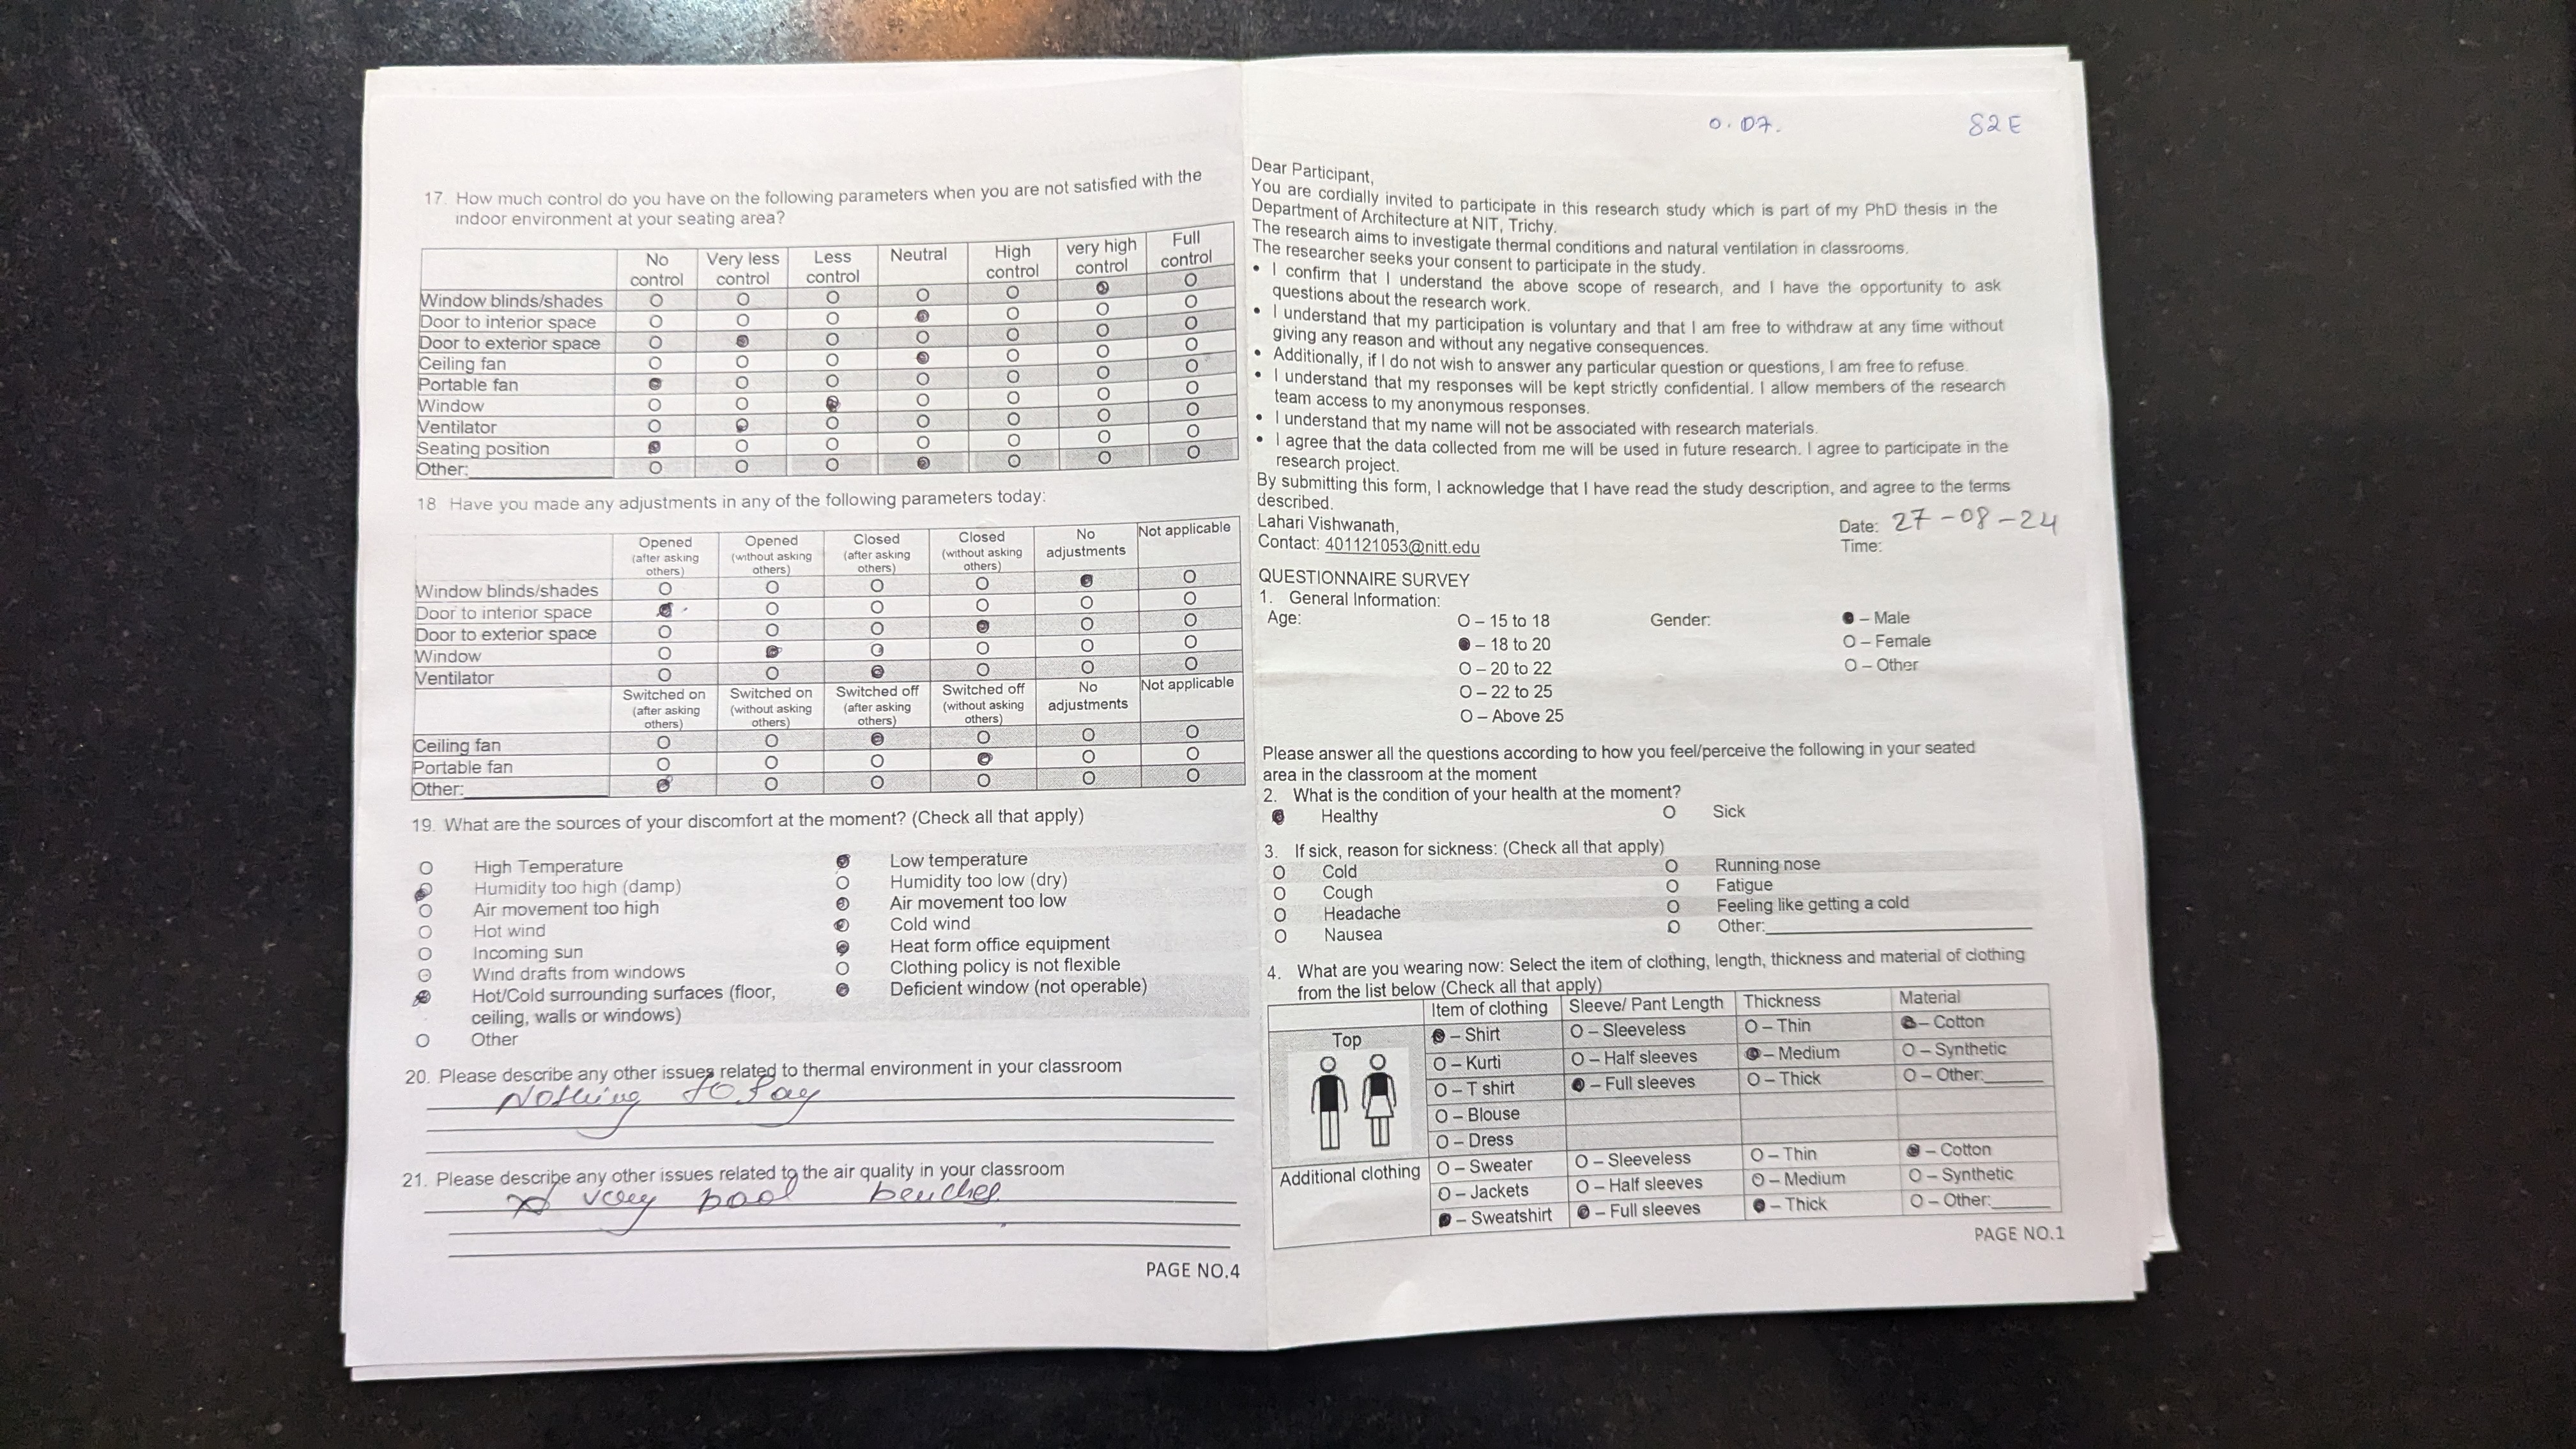 17. How much control do you have on the following parameters when you are not satisfied with the
indoor environment at your seating area?
No control Very less control Less control Neutral High control very high control Full control
Window blinds/shades
Door to interior space
Door to exterior space
Ceiling fan
Portable fan
Window
Ventilator
Seating position
Other:
18 Have you made any adjustments in any of the following parameters today:
Opened (after asking others) Opened (without asking others) Closed (after asking others) Closed (without asking others) No adjustments Not applicable
Window blinds/shades
Door to interior space
Door to exterior space
Window
Ventilator
Switched on (after asking others) Switched on (without asking others) Switched off (after asking others) Switched off (without asking others) No adjustments Not applicable
Ceiling fan
Portable fan
Other:
19. What are the sources of your discomfort at the moment? (Check all that apply)
High Temperature Low temperature
Humidity too high (damp) Humidity too low (dry)
Air movement too high Air movement too low
Hot wind Cold wind
Incoming sun Heat form office equipment
Wind drafts from windows Clothing policy is not flexible
Hot/Cold surrounding surfaces (floor, Deficient window (not operable)
ceiling, walls or windows)
Other
20. Please describe any other issues related to thermal environment in your classroom
Nothing to say
21. Please describe any other issues related to the air quality in your classroom
very bad benches
PAGE NO.4
0.07. S2E
Dear Participant,
You are cordially invited to participate in this research study which is part of my PhD thesis in the
Department of Architecture at NIT, Trichy.
The research aims to investigate thermal conditions and natural ventilation in classrooms.
The researcher seeks your consent to participate in the study.
• I confirm that I understand the above scope of research, and I have the opportunity to ask
questions about the research work.
• I understand that my participation is voluntary and that I am free to withdraw at any time without
giving any reason and without any negative consequences.
• Additionally, if I do not wish to answer any particular question or questions, I am free to refuse.
• I understand that my responses will be kept strictly confidential. I allow members of the research
team access to my anonymous responses.
• I understand that my name will not be associated with research materials.
• I agree that the data collected from me will be used in future research. I agree to participate in the
research project.
By submitting this form, I acknowledge that I have read the study description, and agree to the terms
described.
Lahari Vishwanath, Date: 27-08-24
Contact: 401121053@nitt.edu Time:
QUESTIONNAIRE SURVEY
1. General Information:
Age: O – 15 to 18 Gender: – Male
– 18 to 20 O – Female
O – 20 to 22 O – Other
O – 22 to 25
O – Above 25
Please answer all the questions according to how you feel/perceive the following in your seated
area in the classroom at the moment
2. What is the condition of your health at the moment?
Healthy O Sick
3. If sick, reason for sickness: (Check all that apply)
O Cold O Running nose
O Cough O Fatigue
O Headache O Feeling like getting a cold
O Nausea O Other:
4. What are you wearing now: Select the item of clothing, length, thickness and material of clothing
from the list below (Check all that apply)
Item of clothing Sleeve/ Pant Length Thickness Material
Top – Shirt O – Sleeveless O – Thin – Cotton
O – Kurti O – Half sleeves – Medium O – Synthetic
O – T shirt – Full sleeves O – Thick O – Other:
O – Blouse
O – Dress
Additional clothing O – Sweater O – Sleeveless O – Thin – Cotton
O – Jackets O – Half sleeves O – Medium O – Synthetic
– Sweatshirt – Full sleeves – Thick O – Other:
PAGE NO.1